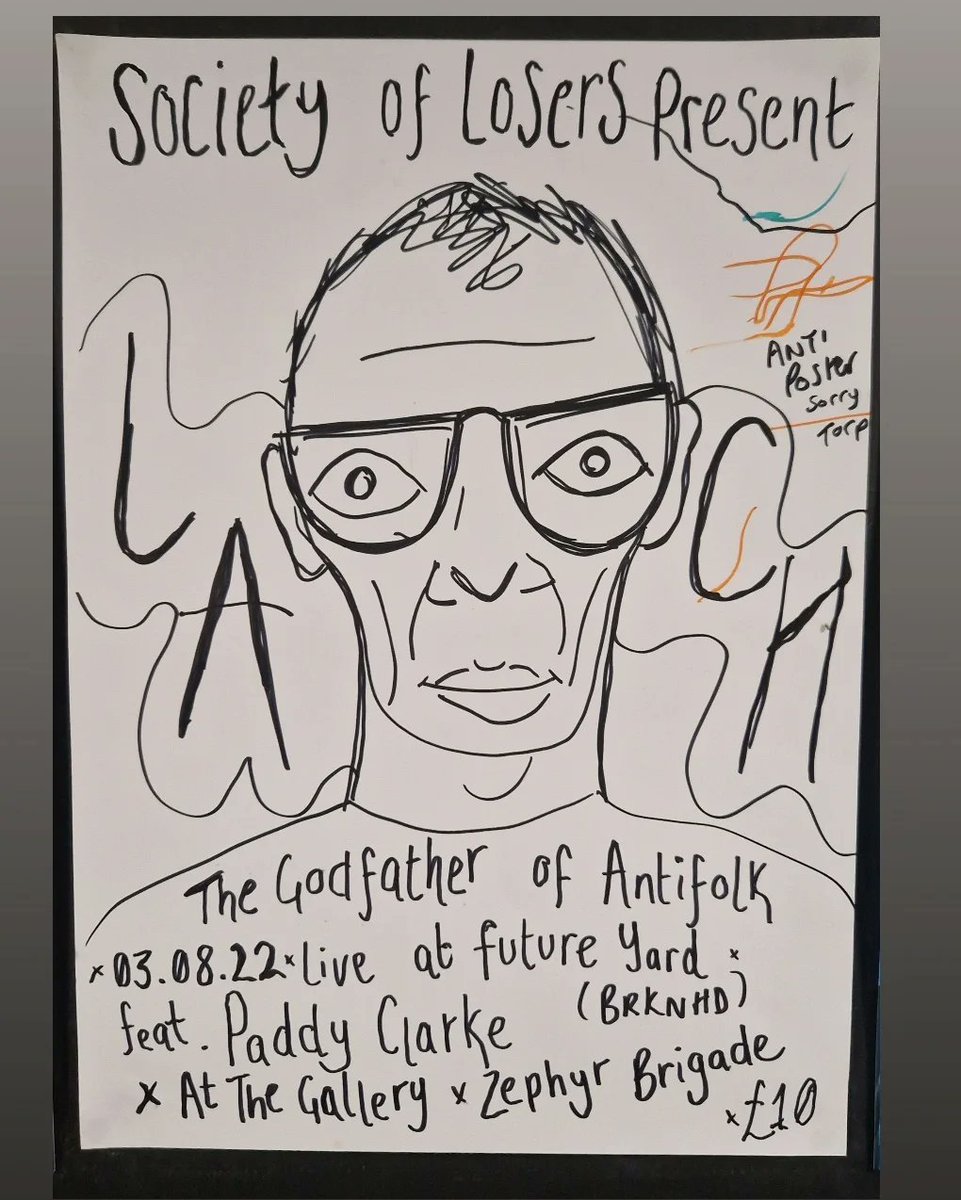 Society of Losers Present
ANTI
Poster
sorry
Torp
LACH
The Godfather of Antifolk
x 03.08.22 x live at future yard x
(BRKNHD)
feat. Paddy Clarke
x At The Gallery x Zephyr Brigade
x £10